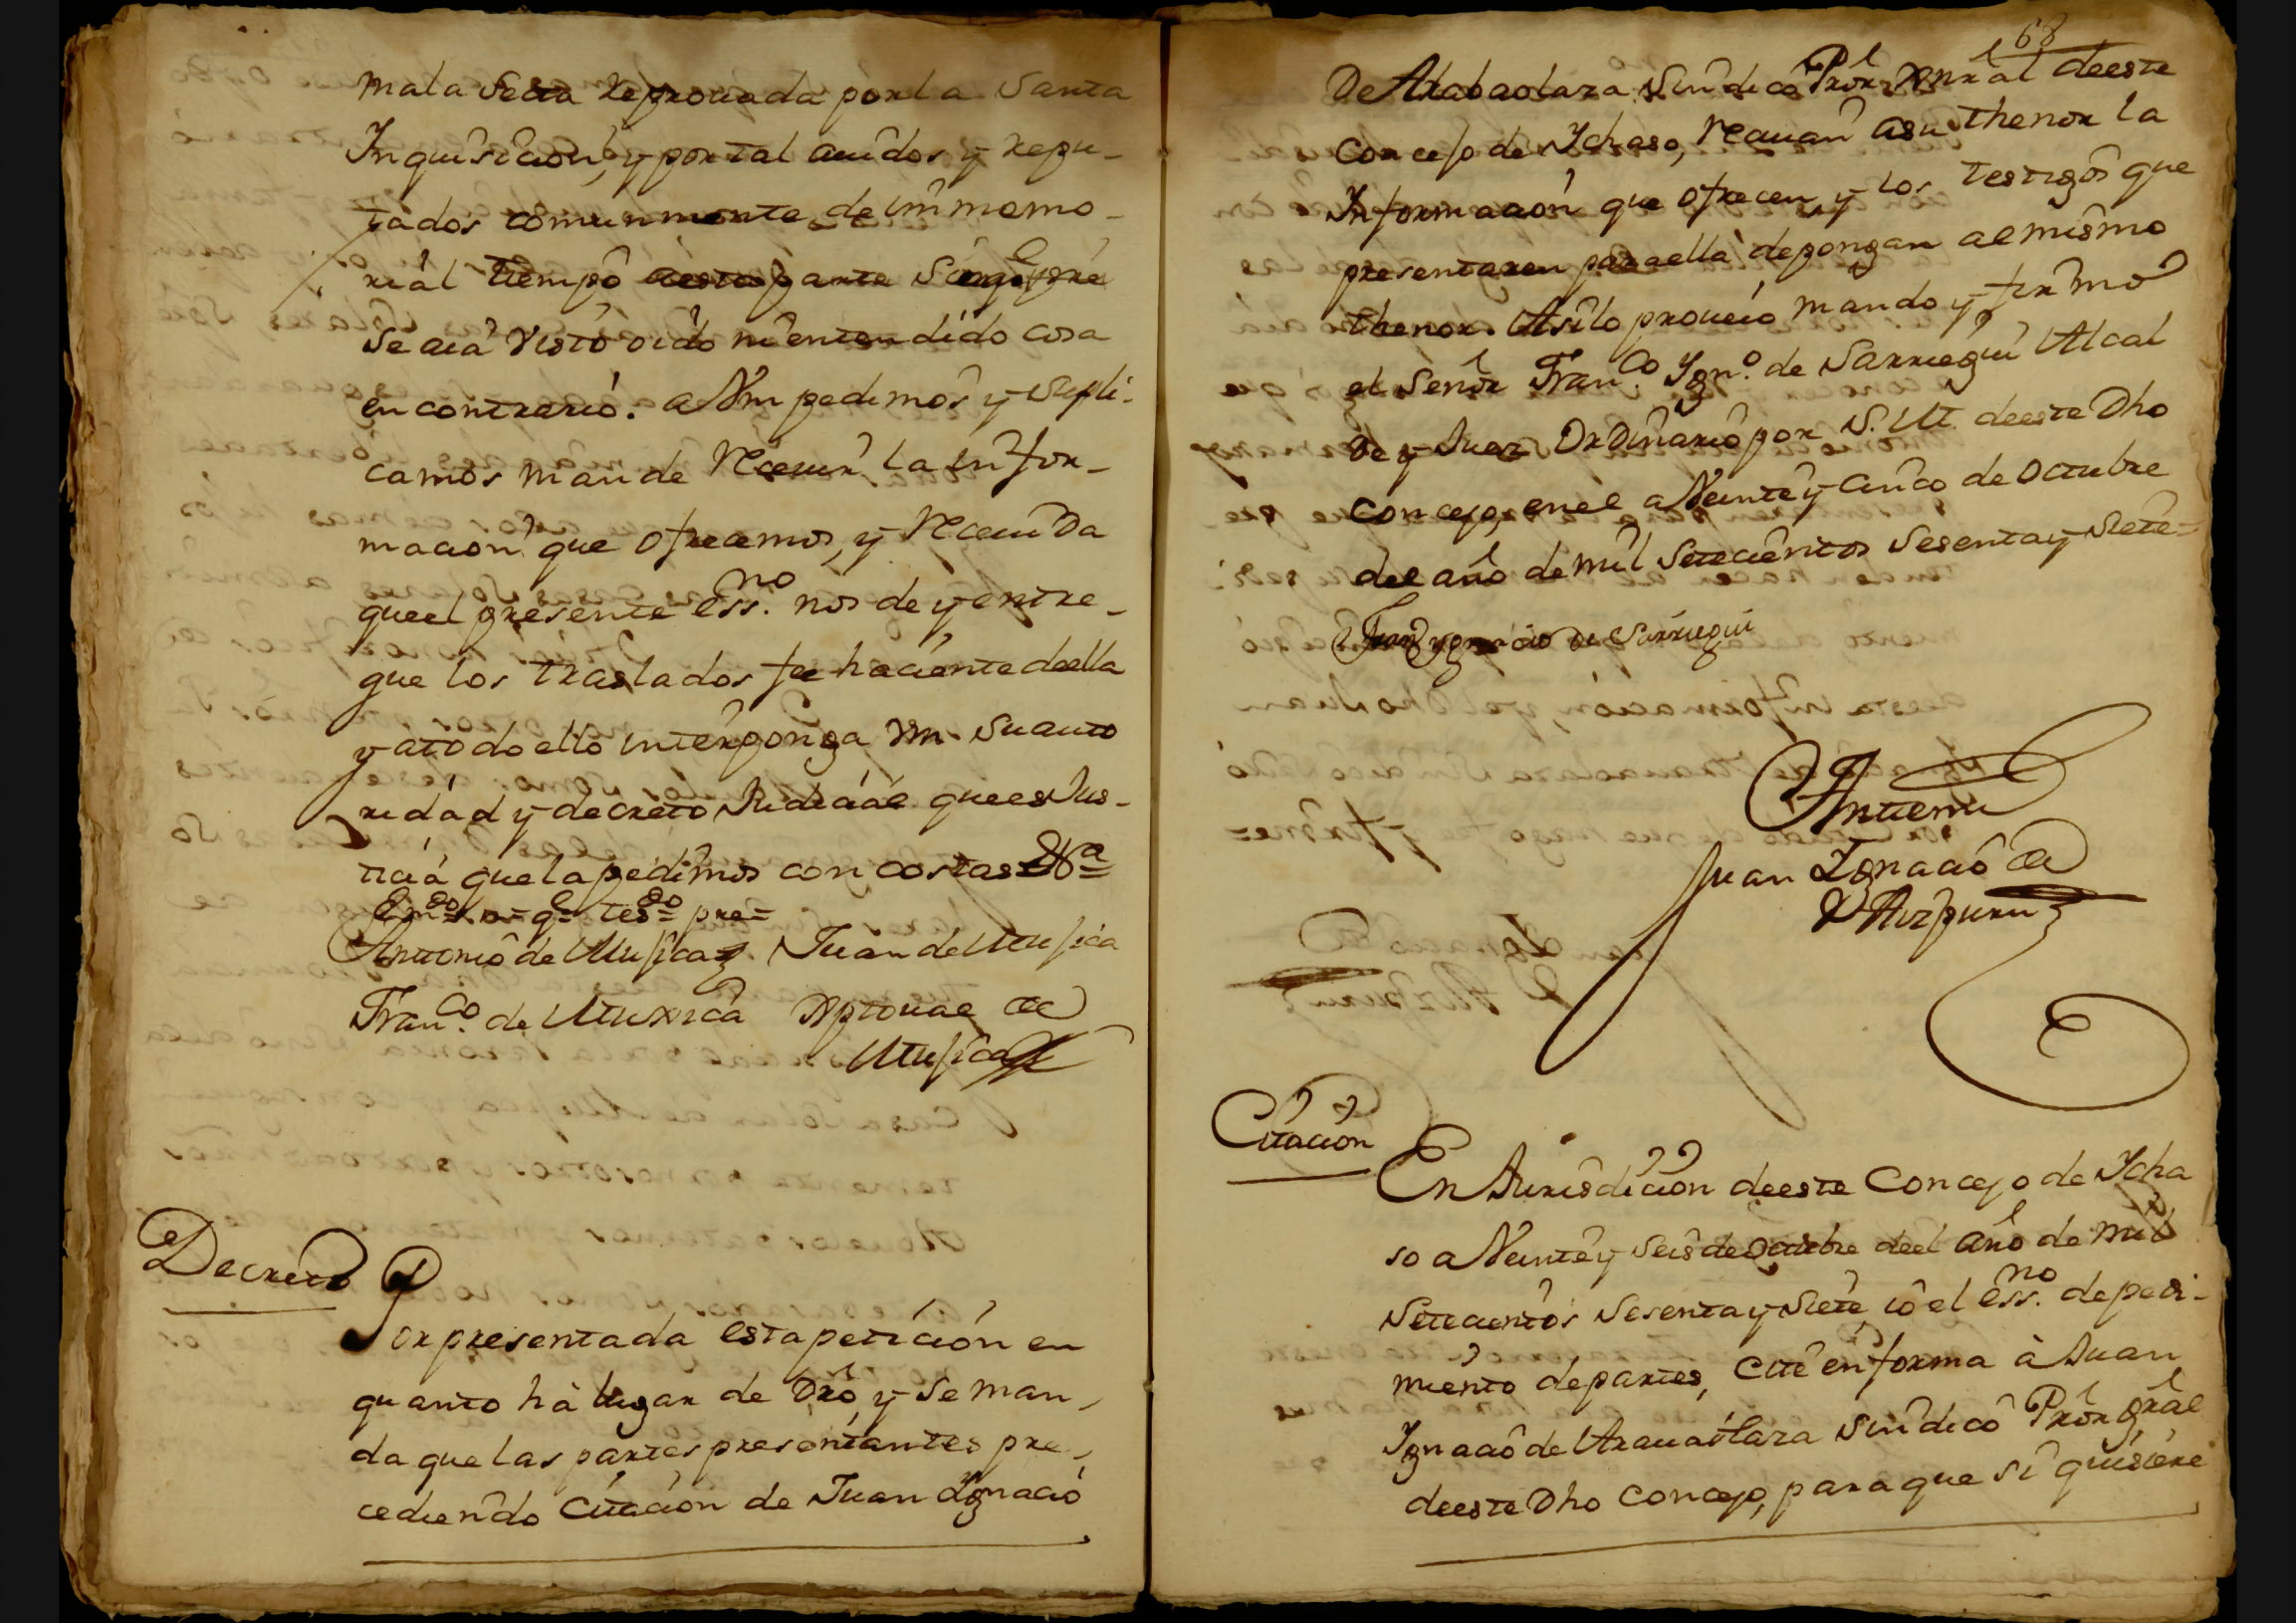 mala Secta Reprouada por la Santa
Inquisicion, y por tal auidos y repu-
tados comunmente de immemo-
rial tiempo aesta parte sin q.e
se aia visto oido ni entendido cosa
en contrario. a Vm pedimos y supli-
camos mande Receuir la infor-
macion que ofrecemos, y Receuida
que el presente ess.no nos de y entre-
gue los traslados fee haciente de ella
y a todo ello interponga Vm. su auto
ridad y decreto Judicial que es Jus-
ticia que la pedimos con costas &a
Em.do
Antonio de Mujica Juan de Mujica
Fran.co de Muxica Xptoual de
Mujica
Decreto
Por presentada esta peticion en
quanto hà lugar de Dro, y se man-
da que las partes presentantes pre-
cediendo Citacion de Juan Ignacio
68
De Arabaolaza Sindico Pror Gnral de este
Concejo de Ychaso, Reciuan a su thenor la
Informacion que ofrecen, y los testigos que
presentaren para ella depongan al mismo
thenor. Asi lo proueio mando y firmo
el Senor Fran.co Ygn.o de Sarriegui Alcal
de y Juez Ordinario por S. M. de este Dho
Concejo, en el a Veinte y Cinco de Octubre
del año de mil Setecientos Sesenta y Siete=
Fran.co Ygnacio de Sarriegui
Antemi
Juan Ignacio de
Aizpuru
Citacion
En Jurisdicion de este Concejo de Ycha
so a Veinte y Seis de Octubre del año de mil
Setecientos Sesenta y Siete, io el Ess.no de pedi-
miento de partes, Cite en forma à Juan
Ignacio de Arauaolaza Sindico Pror gral
de este Dho Concejo, para que si quisiere